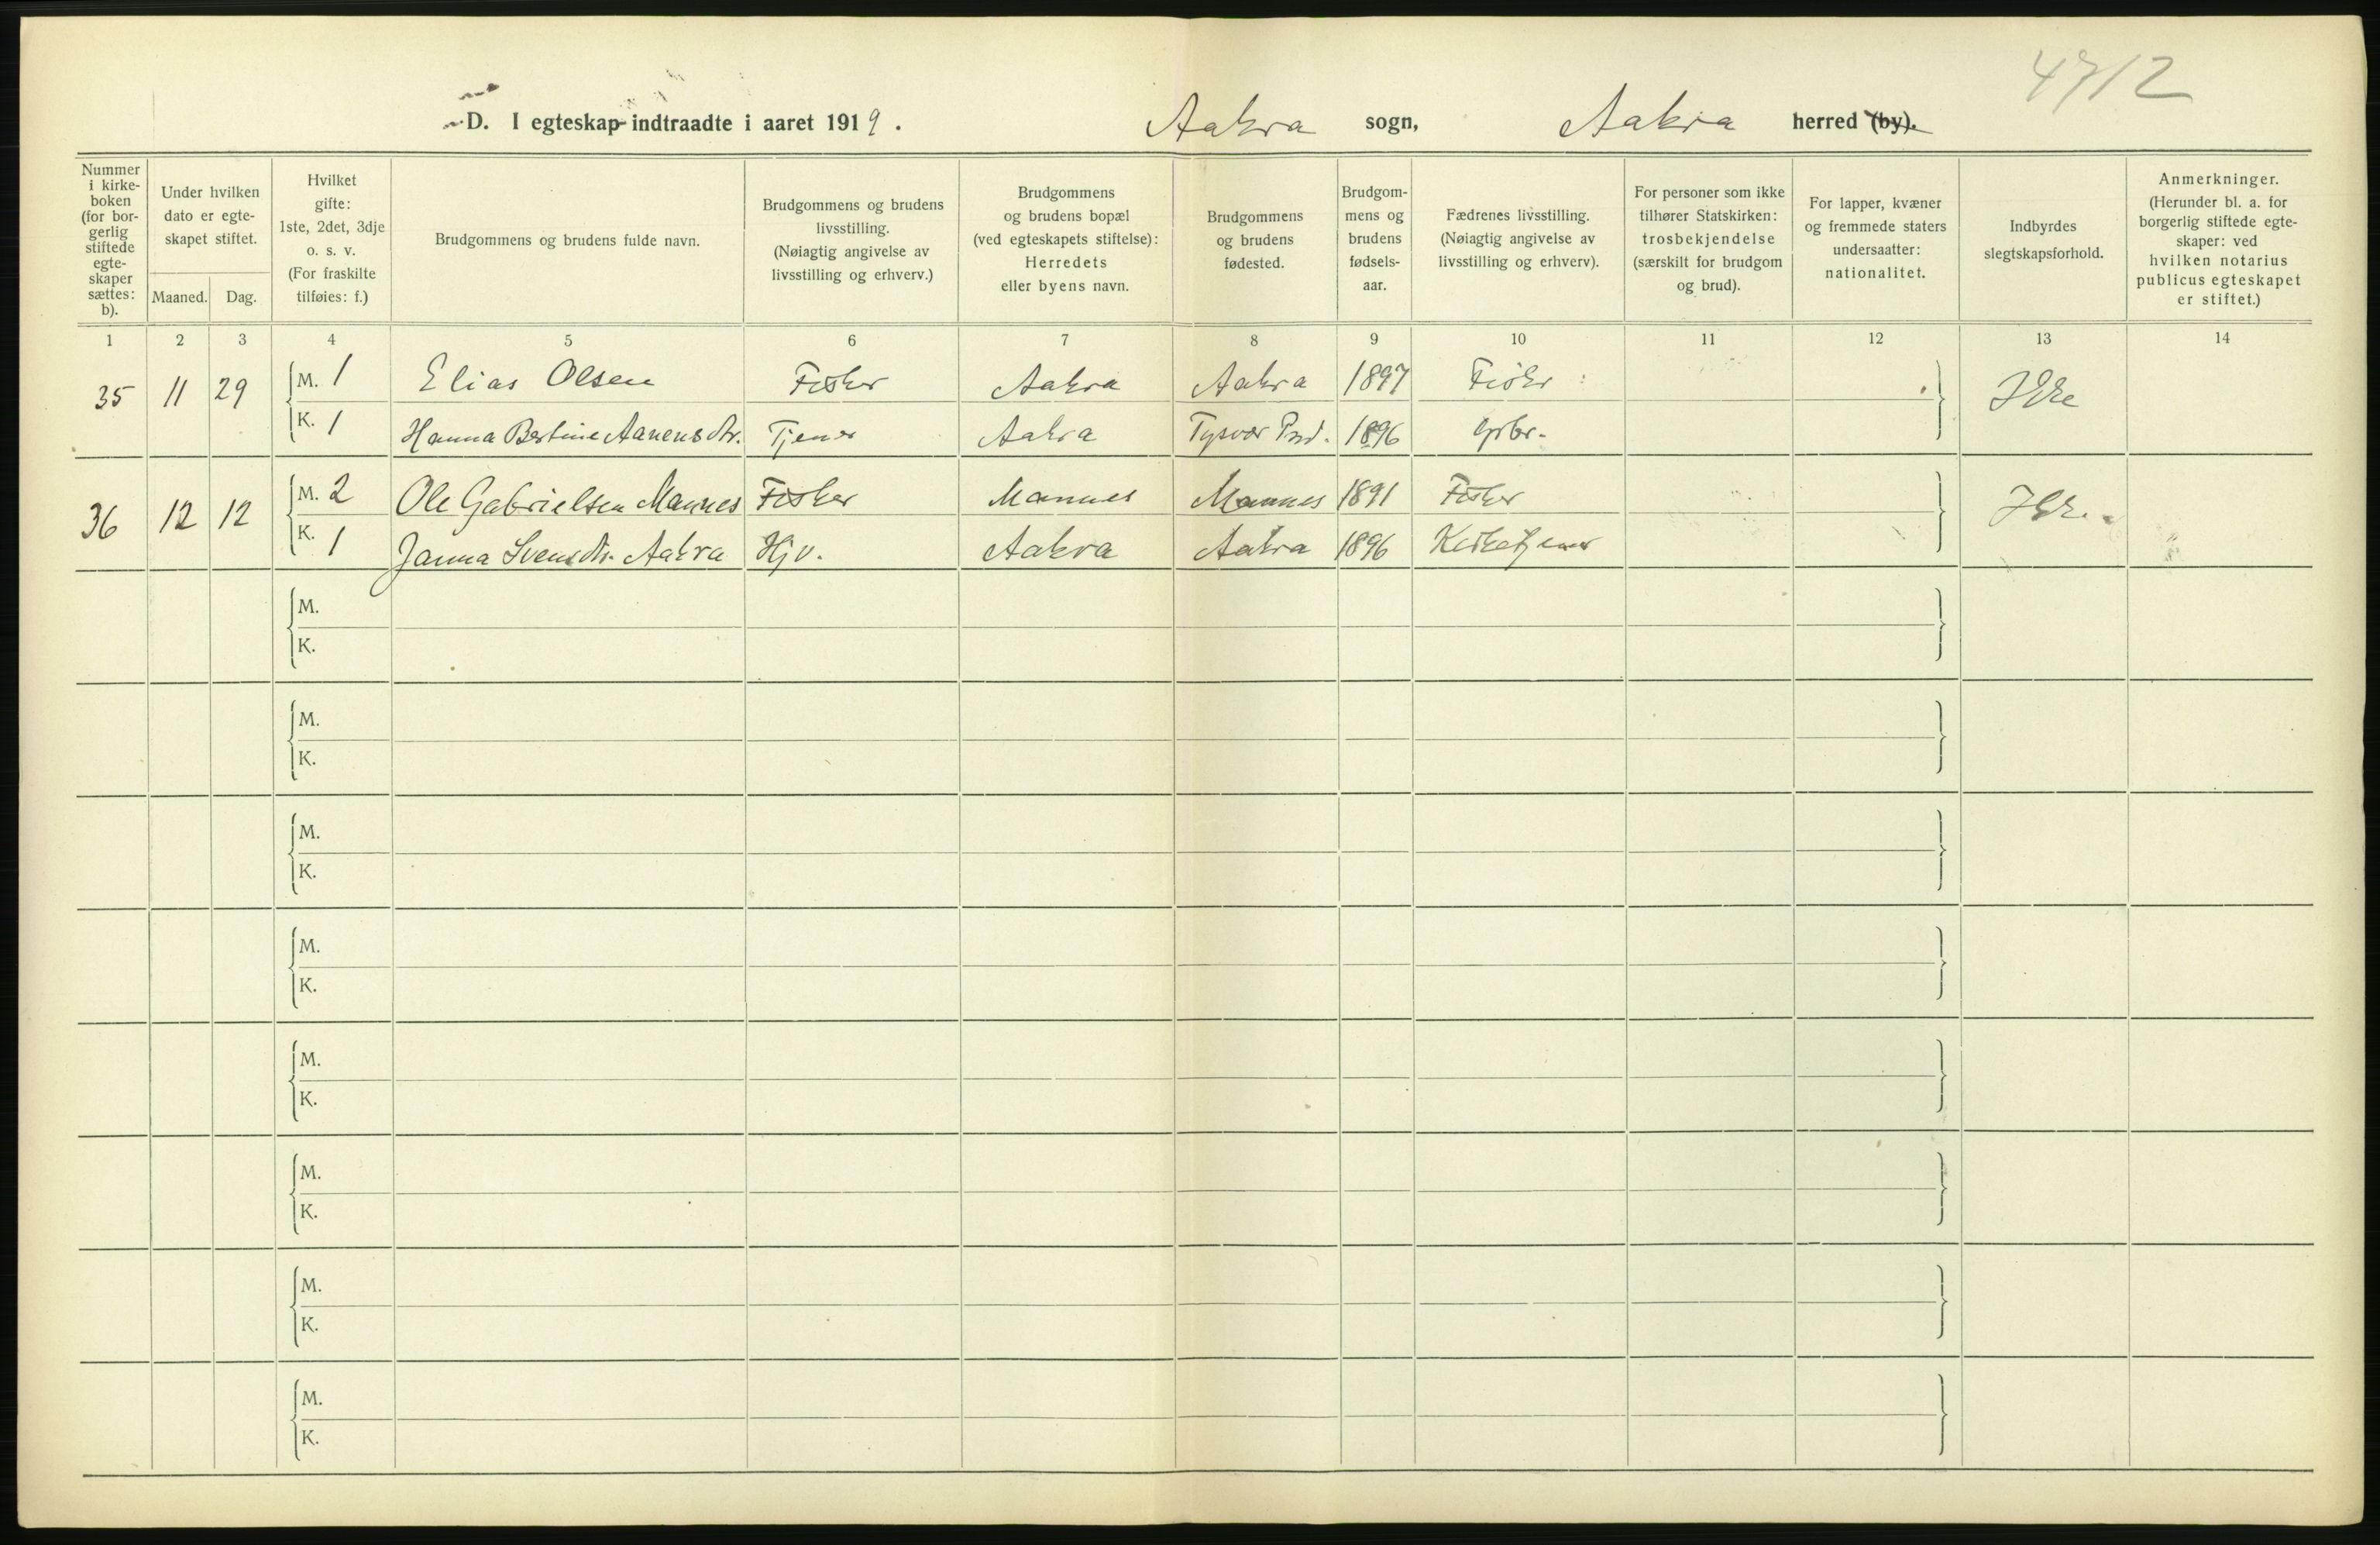 4712
D. I egteskap indtraadte i aaret 1919. Aakra sogn, Aakra herred (by).
Nummer i kirke-boken (for bor-gerlig stiftede egte-skaper sættes: b).
Under hvilken dato er egte-skapet stiftet.
Maaned. Dag.
Hvilket gifte: 1ste, 2det, 3dje o. s. v. (For fraskilte tilføies: f.)
Brudgommens og brudens fulde navn.
Brudgommens og brudens livsstilling. (Nøiagtig angivelse av livsstilling og erhverv.)
Brudgommens og brudens bopæl (ved egteskapets stiftelse): Herredets eller byens navn.
Brudgommens og brudens fødested.
Brudgom-mens og brudens fødsels-aar.
Fædrenes livsstilling. (Nøiagtig angivelse av livsstilling og erhverv).
For personer som ikke tilhører Statskirken: trosbekjendelse (særskilt for brudgom og brud).
For lapper, kvæner og fremmede staters undersaatter: nationalitet.
Indbyrdes slegtskapsforhold.
Anmerkninger. (Herunder bl. a. for borgerlig stiftede egte-skaper: ved hvilken notarius publicus egteskapet er stiftet.)
1 2 3 4 5 6 7 8 9 10 11 12 13 14
35 11 29 M. 1 Elias Olsen Fisker Aakra Aakra 1897 Fisker
K. 1 Hanna Bertine Aanensdtr. Tjener Aakra Tysvær Prd. 1896 Grbr.
36 12 12 M. 2 Ole Gabrielsen Mannes Fisker Mannes Mannes 1891 Fisker
K. 1 Janna Svensdtr. Aakra Hjv. Aakra Aakra 1896 Kirketjener
M.
K.
M.
K.
M.
K.
M.
K.
M.
K.
M.
K.
M.
K.
M.
K.